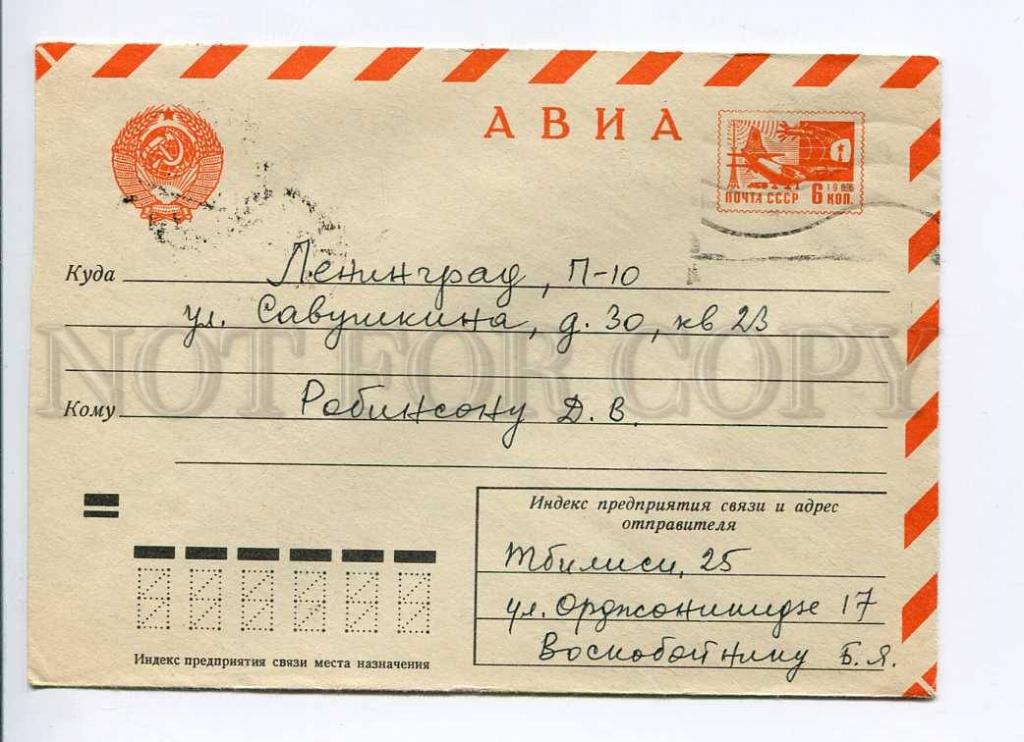 АВИА
ПОЧТА СССР 6 КОП.
1966
Куда Ленинград, П-10
ул. Савушкина, д. 30, кв 23
NOT FOR COPY
Кому Робинсону Д. В.
Индекс предприятия связи и адрес
отправителя
Тбилиси, 25
ул. Орджоникидзе 17
Воскобойнику Б. Я.
Индекс предприятия связи места назначения